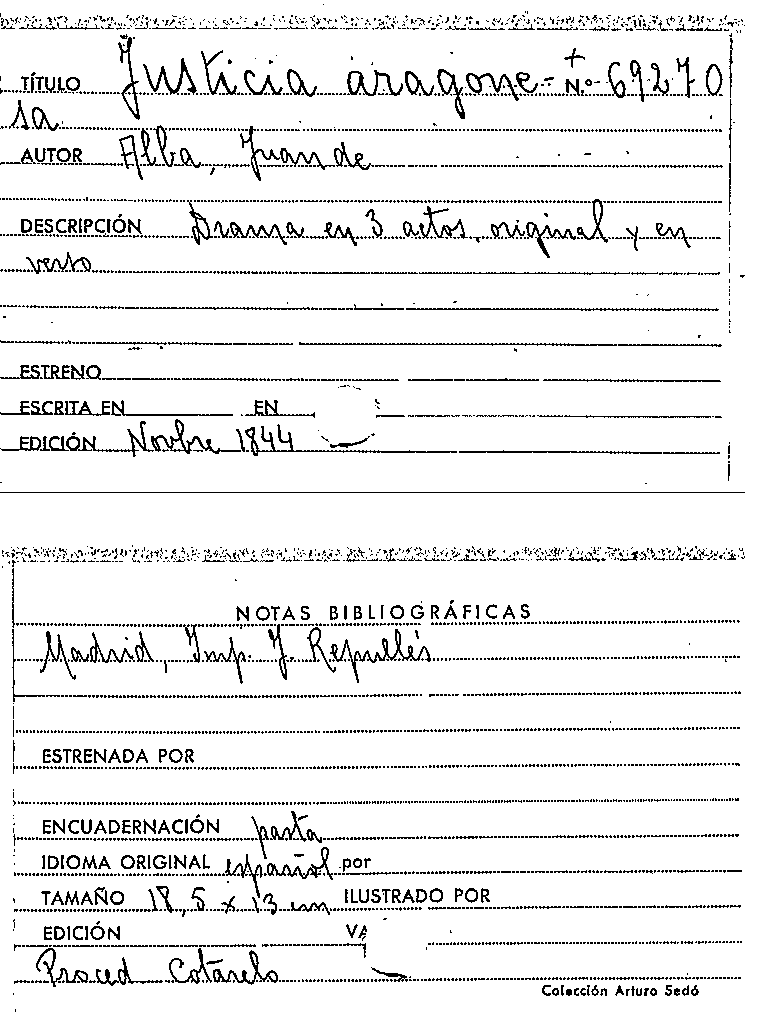 TÍTULO Justicia aragone- + N.º 69270
sa
AUTOR Alba, Juan de
DESCRIPCIÓN Drama en 3 actos, original y en
verso
ESTRENO
ESCRITA EN EN
EDICIÓN Novbre 1844
NOTAS BIBLIOGRÁFICAS
Madrid, Imp. J. Repullés
ESTRENADA POR
ENCUADERNACIÓN pasta
IDIOMA ORIGINAL español por
TAMAÑO 18,5 x 13 cm ILUSTRADO POR
EDICIÓN
Proced Cotarelo
Colección Arturo Sedó